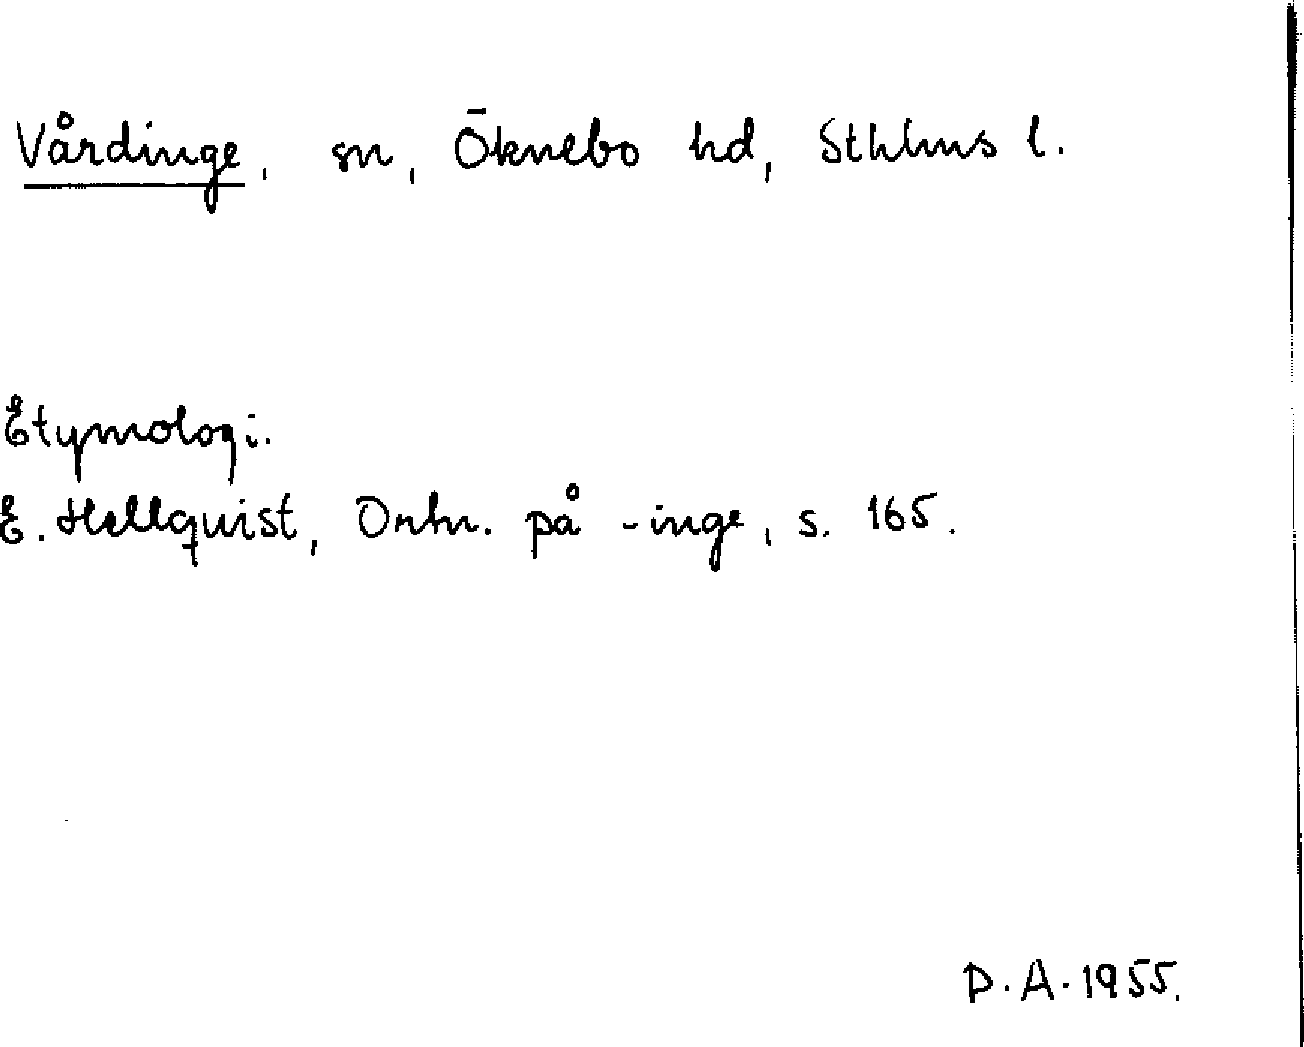 Vårdinge, sn, Öknebo hd, Sthlms l.
Etymologi.
E. Hellquist, Ortn. på -inge, s. 165.
D. A. 1955.